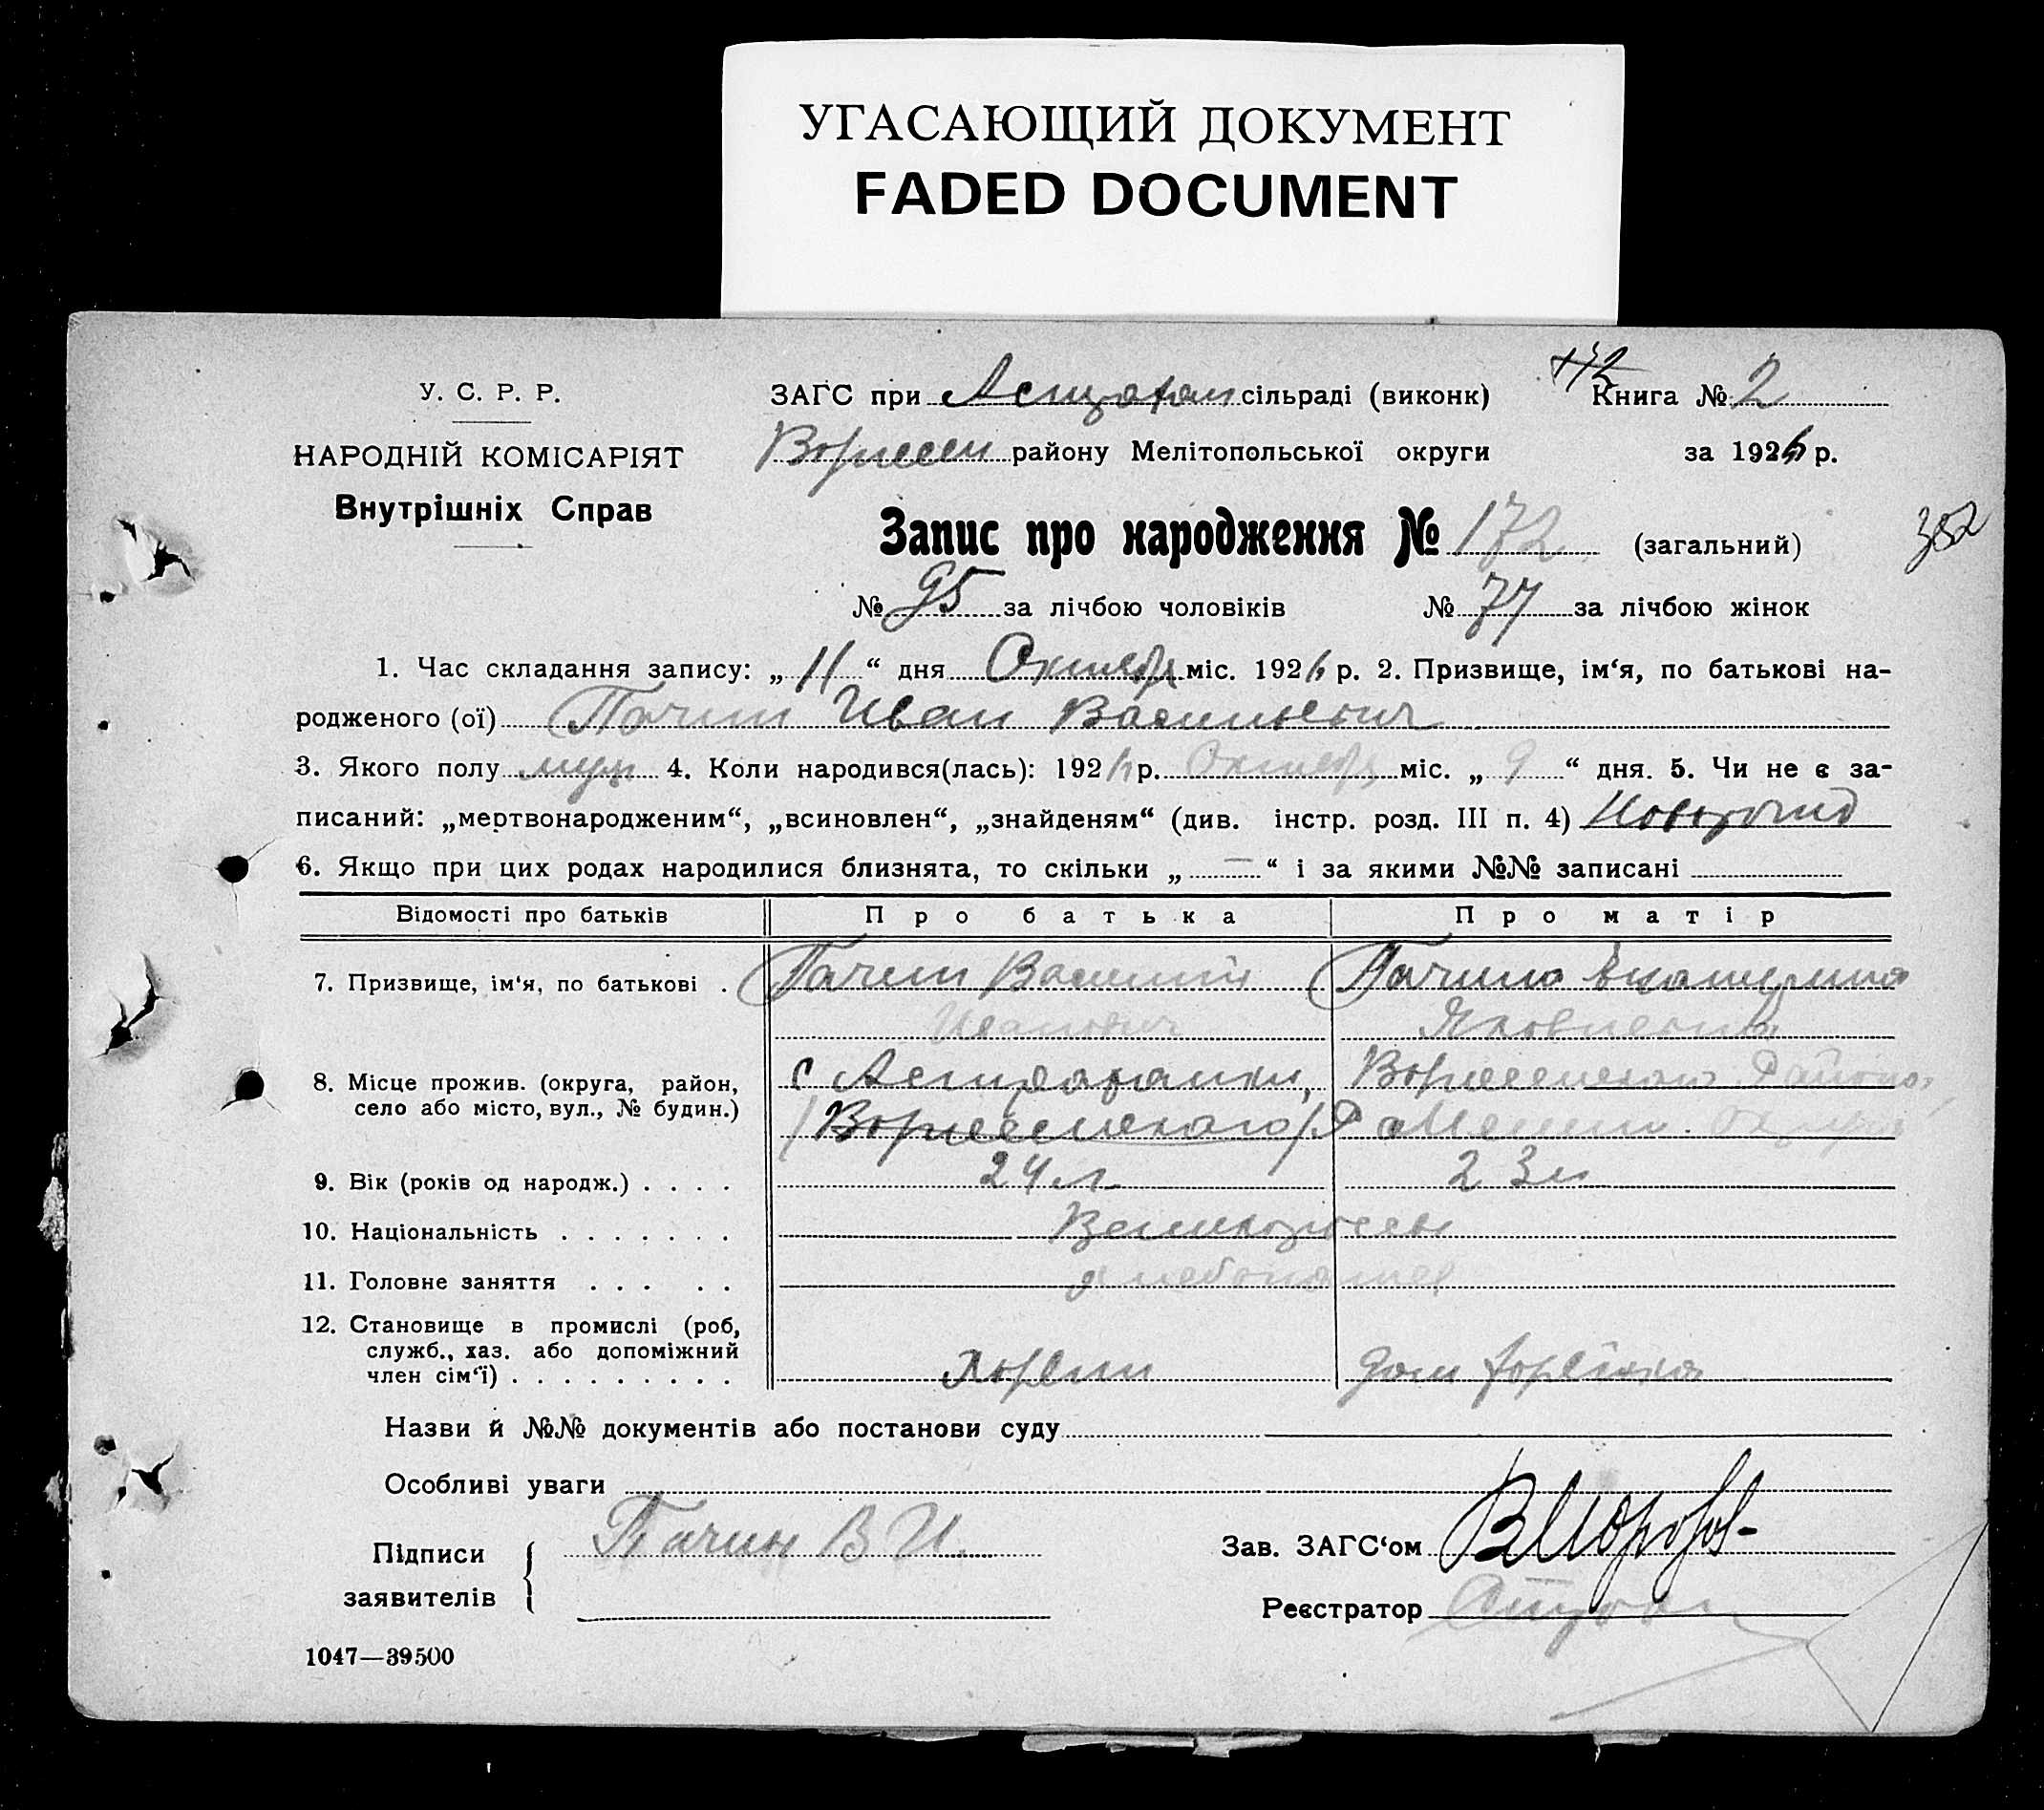 УГАСАЮЩИЙ ДОКУМЕНТ
FADED DOCUMENT
172
У. С. Р. Р.
ЗАГС при Астрахан сільраді (виконк) Книга № 2
НАРОДНІЙ КОМІСАРІЯТ
района Мелітопольської округи за 1926 р.
Внутрішніх Справ
Запис про народження № 172 (загальний)
382
№ 95 за лічбою чоловіків № 77 за лічбою жінок
1. Час складання запису: „ 11 “ дня Октября міс. 1926 р. 2. Призвище, ім‘я, по батькові на-
родженого (ої) Пачин Иван Васильевич
3. Якого полу муж 4. Коли народився(лась): 1926 р. Октября міс. „ 9 “ дня. 5. Чи не є за-
писаний: „мертвонародженим“, „всиновлен“, „знайденям“ (див. інстр. розд. III п. 4)
6. Якщо при цих родах народилися близнята, то скільки „ — “ і за якими №№ записані
Відомості про батьків Про батька Про матір
7. Призвище, ім‘я, по батькові . Пачин Василий Пачина Екатерина
Иванович Яковлевна
8. Місце прожив. (округа, район, с Астраханки,
село або місто, вул., № будин.)
9. Вік (років од народж.) . . . . 24 л 23 л
10. Національність . . . . . . . Великороссы
11. Головне заняття . . . . . хлебопашец
12. Становище в промислі (роб,
служб., хаз. або допоміжний
член сім‘ї) . . . . . . . . . Хозяин дом хозяйка
Назви й №№ документів або постанови суду
Особливі уваги
Підписи Пачин В И.
Зав. ЗАГС‘ом В Морозов
заявителів
Реєстратор
1047—39500